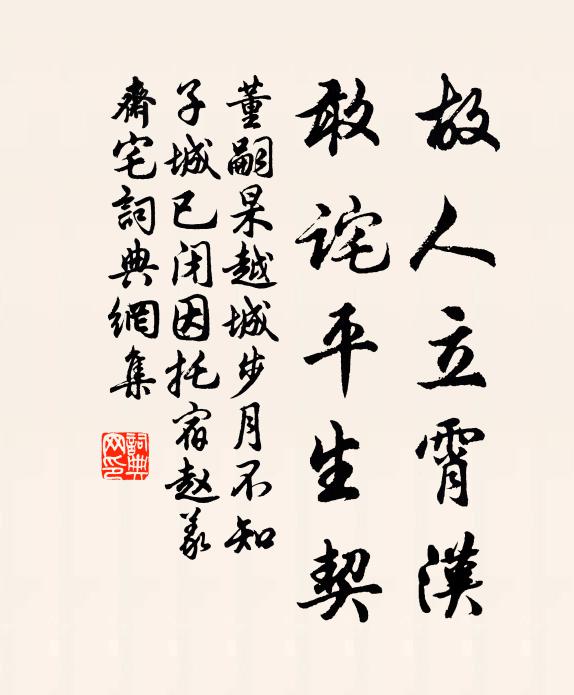 故人立霄漢
敢诧平生契
董嗣杲越城步月不知
子城已闭因托宿赵義
齋宅詞典網集
詞典网印